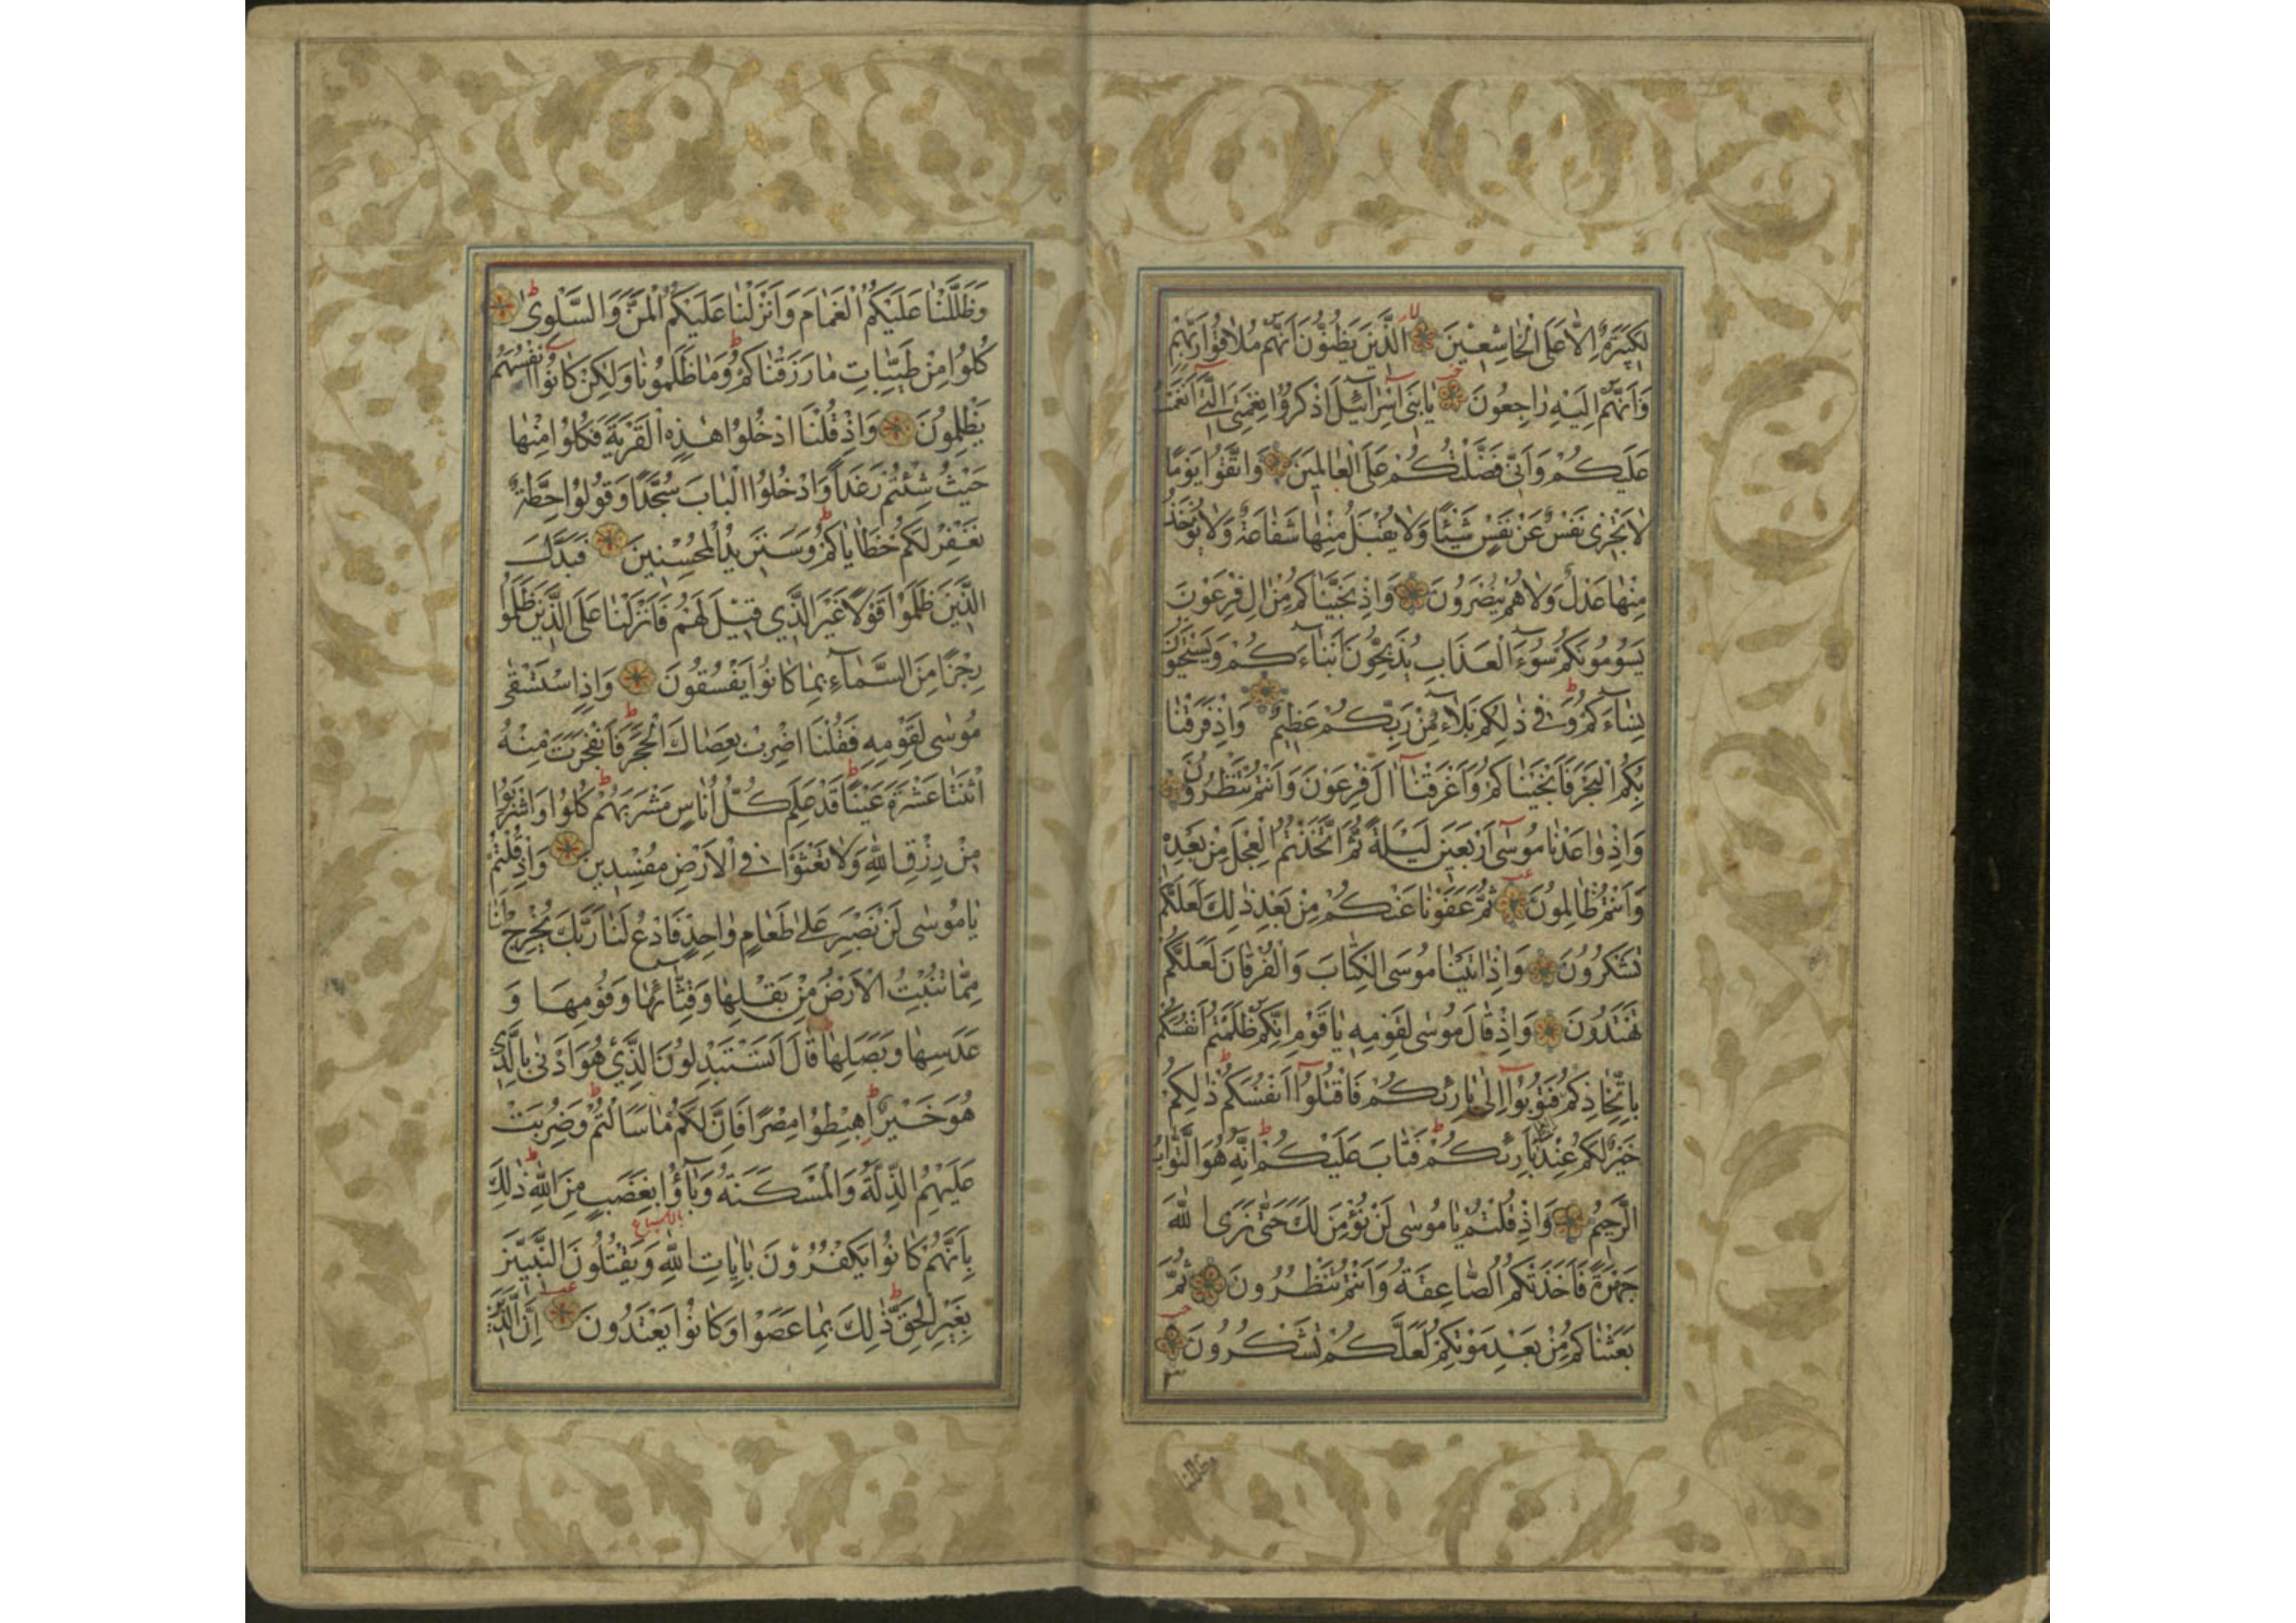 لَكَبِيرَةٌ اِلَّا عَلَى الْخَاشِعِينَ الَّذِينَ يَظُنُّونَ اَنَّهُمْ مُلَاقُوا رَبِّهِمْ
وَاَنَّهُمْ اِلَيْهِ رَاجِعُونَ يَا بَنِى اِسْرَآئِيلَ اذْكُرُوا نِعْمَتِىَ الَّتِى اَنْعَمْتُ
عَلَيْكُمْ وَاَنِّى فَضَّلْتُكُمْ عَلَى الْعَالَمِينَ وَاتَّقُوا يَوْمًا
لَا تَجْزِى نَفْسٌ عَنْ نَفْسٍ شَيْئًا وَلَا يُقْبَلُ مِنْهَا شَفَاعَةٌ وَلَا يُؤْخَذُ
مِنْهَا عَدْلٌ وَلَا هُمْ يُنْصَرُونَ وَاِذْ نَجَّيْنَاكُمْ مِنْ اٰلِ فِرْعَوْنَ
يَسُومُونَكُمْ سُوٓءَ الْعَذَابِ يُذَبِّحُونَ اَبْنَآءَكُمْ وَيَسْتَحْيُونَ
نِسَآءَكُمْ وَفِى ذٰلِكُمْ بَلَآءٌ مِنْ رَبِّكُمْ عَظِيمٌ وَاِذْ فَرَقْنَا
بِكُمُ الْبَحْرَ فَاَنْجَيْنَاكُمْ وَاَغْرَقْنَآ اٰلَ فِرْعَوْنَ وَاَنْتُمْ تَنْظُرُونَ
وَاِذْ وَاعَدْنَا مُوسٰٓى اَرْبَعِينَ لَيْلَةً ثُمَّ اتَّخَذْتُمُ الْعِجْلَ مِنْ بَعْدِهِ
وَاَنْتُمْ ظَالِمُونَ ثُمَّ عَفَوْنَا عَنْكُمْ مِنْ بَعْدِ ذٰلِكَ لَعَلَّكُمْ
تَشْكُرُونَ وَاِذْ اٰتَيْنَا مُوسَى الْكِتَابَ وَالْفُرْقَانَ لَعَلَّكُمْ
تَهْتَدُونَ وَاِذْ قَالَ مُوسٰى لِقَوْمِهِ يَا قَوْمِ اِنَّكُمْ ظَلَمْتُمْ اَنْفُسَكُمْ
بِاتِّخَاذِكُمُ فَتُوبُوٓا اِلٰى بَارِئِكُمْ فَاقْتُلُوٓا اَنْفُسَكُمْ ذٰلِكُمْ
خَيْرٌ لَكُمْ عِنْدَ بَارِئِكُمْ فَتَابَ عَلَيْكُمْ اِنَّهُ هُوَ التَّوَّابُ
الرَّحِيمُ وَاِذْ قُلْتُمْ يَا مُوسٰى لَنْ نُؤْمِنَ لَكَ حَتّٰى نَرَى اللّٰهَ
جَهْرَةً فَاَخَذَتْكُمُ الصَّاعِقَةُ وَاَنْتُمْ تَنْظُرُونَ ثُمَّ
بَعَثْنَاكُمْ مِنْ بَعْدِ مَوْتِكُمْ لَعَلَّكُمْ تَشْكُرُونَ
٣
وظللنا
وَظَلَّلْنَا عَلَيْكُمُ الْغَمَامَ وَاَنْزَلْنَا عَلَيْكُمُ الْمَنَّ وَالسَّلْوٰى
كُلُوا مِنْ طَيِّبَاتِ مَا رَزَقْنَاكُمْ وَمَا ظَلَمُونَا وَلٰكِنْ كَانُوٓا اَنْفُسَهُمْ
يَظْلِمُونَ وَاِذْ قُلْنَا ادْخُلُوا هٰذِهِ الْقَرْيَةَ فَكُلُوا مِنْهَا
حَيْثُ شِئْتُمْ رَغَدًا وَادْخُلُوا الْبَابَ سُجَّدًا وَقُولُوا حِطَّةٌ
نَغْفِرْ لَكُمْ خَطَايَاكُمْ وَسَنَزِيدُ الْمُحْسِنِينَ فَبَدَّلَ
الَّذِينَ ظَلَمُوا قَوْلًا غَيْرَ الَّذِي قِيلَ لَهُمْ فَاَنْزَلْنَا عَلَى الَّذِينَ ظَلَمُوا
رِجْزًا مِنَ السَّمَآءِ بِمَا كَانُوا يَفْسُقُونَ وَاِذِ اسْتَسْقٰى
مُوسٰى لِقَوْمِهِ فَقُلْنَا اضْرِبْ بِعَصَاكَ الْحَجَرَ فَانْفَجَرَتْ مِنْهُ
اثْنَتَا عَشْرَةَ عَيْنًا قَدْ عَلِمَ كُلُّ اُنَاسٍ مَشْرَبَهُمْ كُلُوا وَاشْرَبُوا
مِنْ رِزْقِ اللّٰهِ وَلَا تَعْثَوْا فِى الْاَرْضِ مُفْسِدِينَ وَاِذْ قُلْتُمْ
يَا مُوسٰى لَنْ نَصْبِرَ عَلٰى طَعَامٍ وَاحِدٍ فَادْعُ لَنَا رَبَّكَ يُخْرِجْ لَنَا
مِمَّا تُنْبِتُ الْاَرْضُ مِنْ بَقْلِهَا وَقِثَّآئِهَا وَفُومِهَا وَ
عَدَسِهَا وَبَصَلِهَا قَالَ اَتَسْتَبْدِلُونَ الَّذِي هُوَ اَدْنٰى بِالَّذِي
هُوَ خَيْرٌ اِهْبِطُوا مِصْرًا فَاِنَّ لَكُمْ مَا سَاَلْتُمْ وَضُرِبَتْ
عَلَيْهِمُ الذِّلَّةُ وَالْمَسْكَنَةُ وَبَآؤُ بِغَضَبٍ مِنَ اللّٰهِ ذٰلِكَ
بِاَنَّهُمْ كَانُوا يَكْفُرُونَ بِاٰيَاتِ اللّٰهِ وَيَقْتُلُونَ النَّبِيّٖنَ
بِغَيْرِ الْحَقِّ ذٰلِكَ بِمَا عَصَوْا وَكَانُوا يَعْتَدُونَ اِنَّ الَّذِينَ